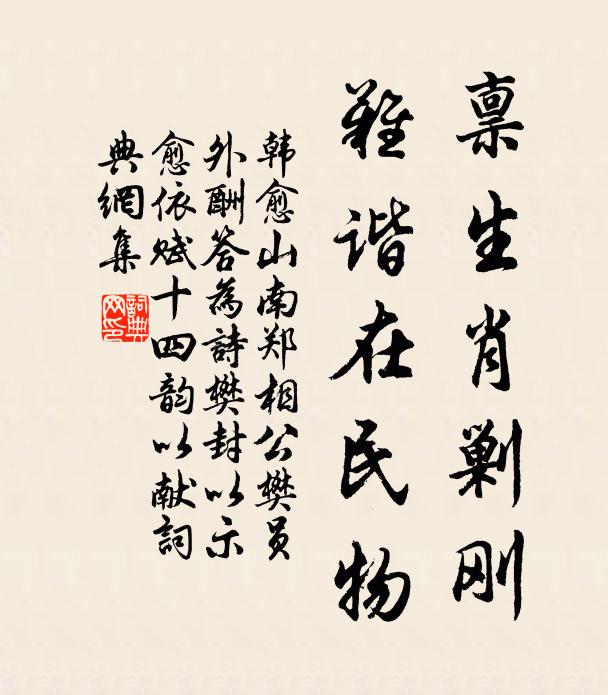 禀生肖剿刚
難谐在民物
韩愈山南郑相公樊员
外酬答為詩樊封以示
愈依赋十四韵以献詞
典網集
詞典网印